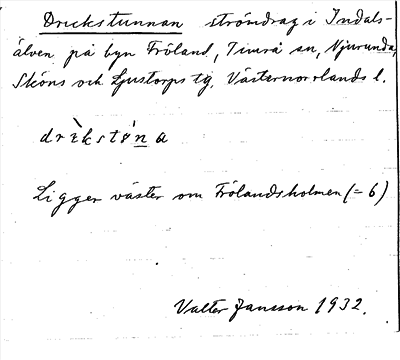 Drickstunnan strömdrag i Indals-
älven på byn Fröland, Timrå sn, Njurunda,
Sköns och Ljustorps tg. Västernorrlands l.
drìkstu̇na
Ligger väster om Frölandsholmen (= 6)
Valter Jansson 1932.